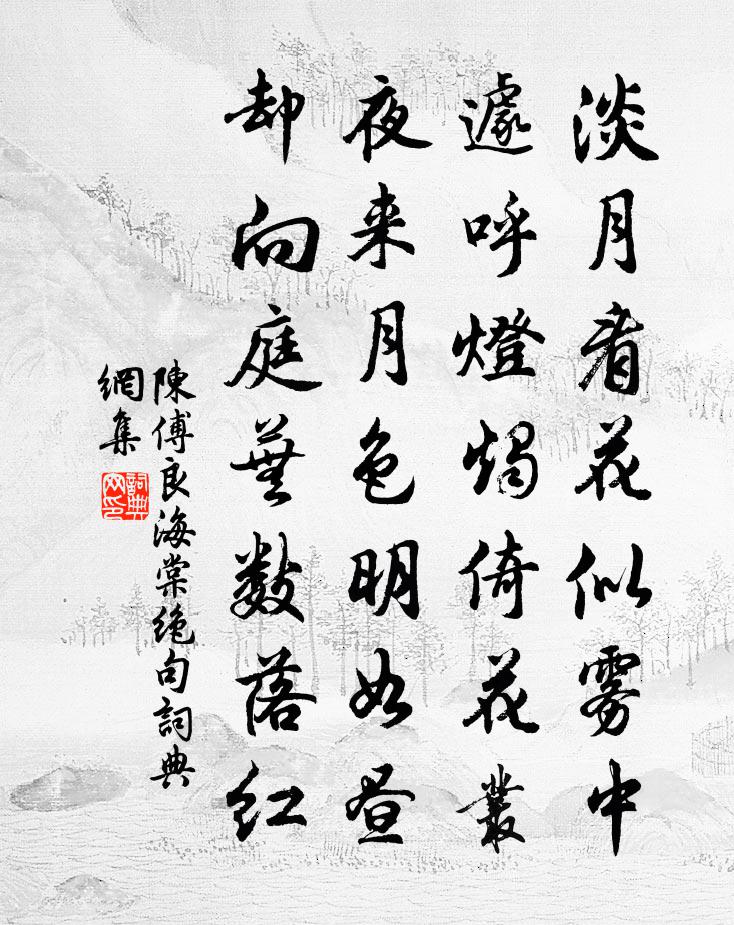 淡月看花似雾中
遽呼燈燭倚花叢
夜来月色明如昼
却向庭蕪数落红
陳傅良海棠絶句詞典
網集
詞典
网印